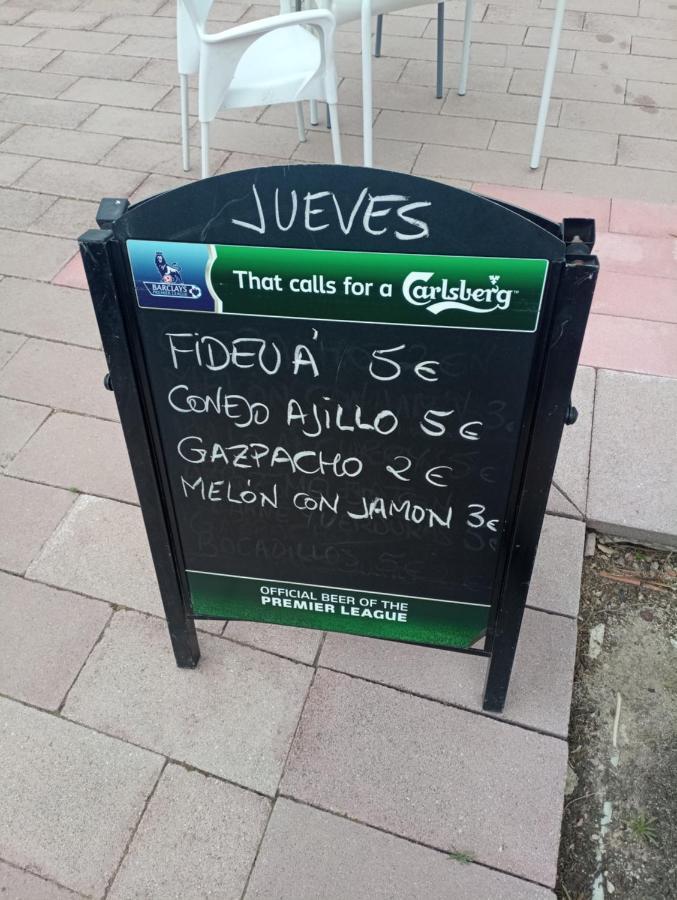 JUEVES
BARCLAYS
PREMIER LEAGUE
That calls for a Carlsberg™
FIDEUÁ 5€
CONEJO AJILLO 5€
GAZPACHO 2€
MELÓN CON JAMON 3€
BOCADILLOS 5€
OFFICIAL BEER OF THE
PREMIER LEAGUE